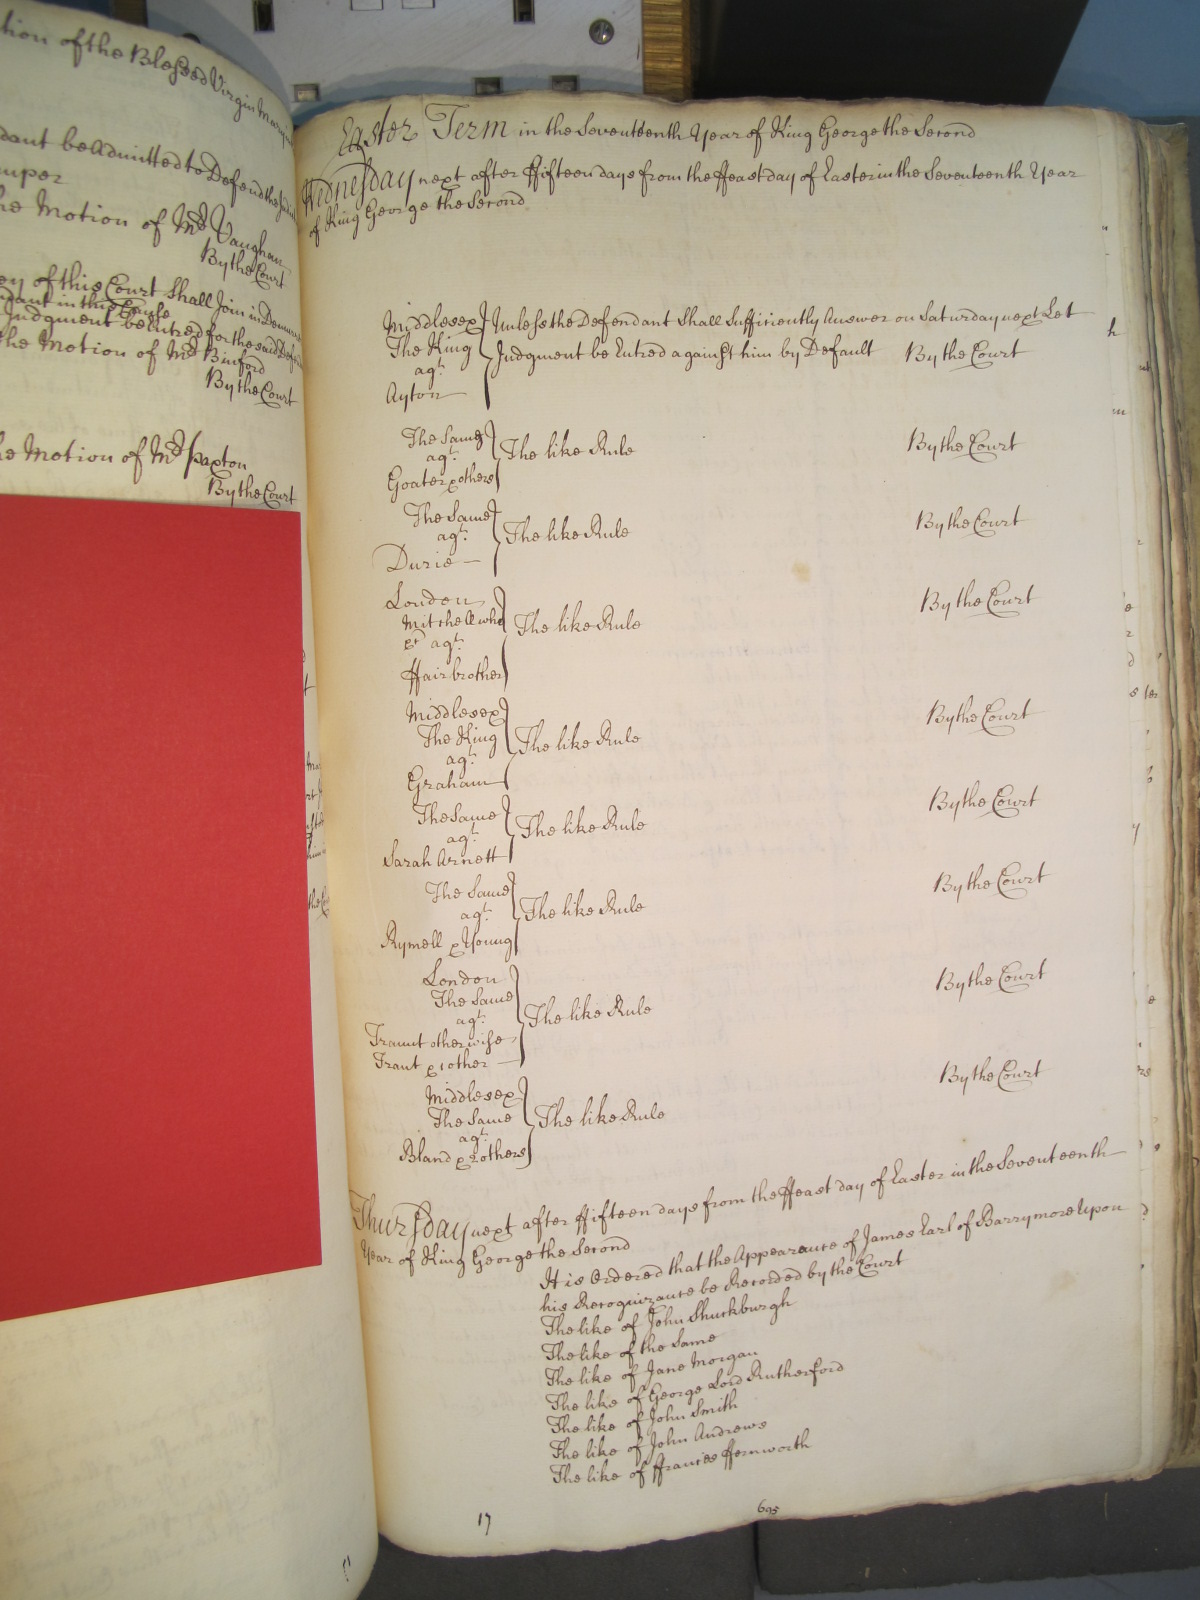 tion of the Blessed Virgin Mary
dant be Admitted to Defend the
auper
he Motion of Mr Vaughan
By the Court
ey of this Court Shall Join in Demurr
dant in this Cause
Judgment be Entred for the said Defen
the Motion of Mr Binford
By the Court
he Motion of Mr Paxton
By the Court
Easter Term in the Seventeenth Year of King George the Second
Wednesday next after ffifteen days from the ffeast day of Easter in the Seventeenth Year
of King George the Second
Middlesex Unless the Defendant Shall Sufficiently Answer on Saturday next Let
The King Judgment be Entred against him by Default By the Court
agt.
Ayton
The Same
agt. The like Rule By the Court
Goater & others
The Same
agt. The like Rule By the Court
Durie
London
Mitchell who The like Rule By the Court
&c agt.
ffairbrother
Middlesex
The King The like Rule By the Court
agt.
Graham
The Same
agt. The like Rule By the Court
Sarah Arnett
The Same
agt. The like Rule By the Court
Rymell & Young
London
The Same
agt. The like Rule By the Court
Traunt otherwise
Trant & 1 other
Middlesex
The Same The like Rule By the Court
agt.
Bland & 2 others
Thursday next after ffifteen days from the ffeast day of Easter in the Seventeenth
Year of King George the Second
It is Ordered that the Appearance of James Earl of Barrymore Upon
his Recognizance be Recorded by the Court
The like of John Shuckburgh
The like of the Same
The like of Jane Morgan
The like of George Lord Rutherford
The like of John Smith
The like of John Andrews
The like of ffrances ffernworth
17
695